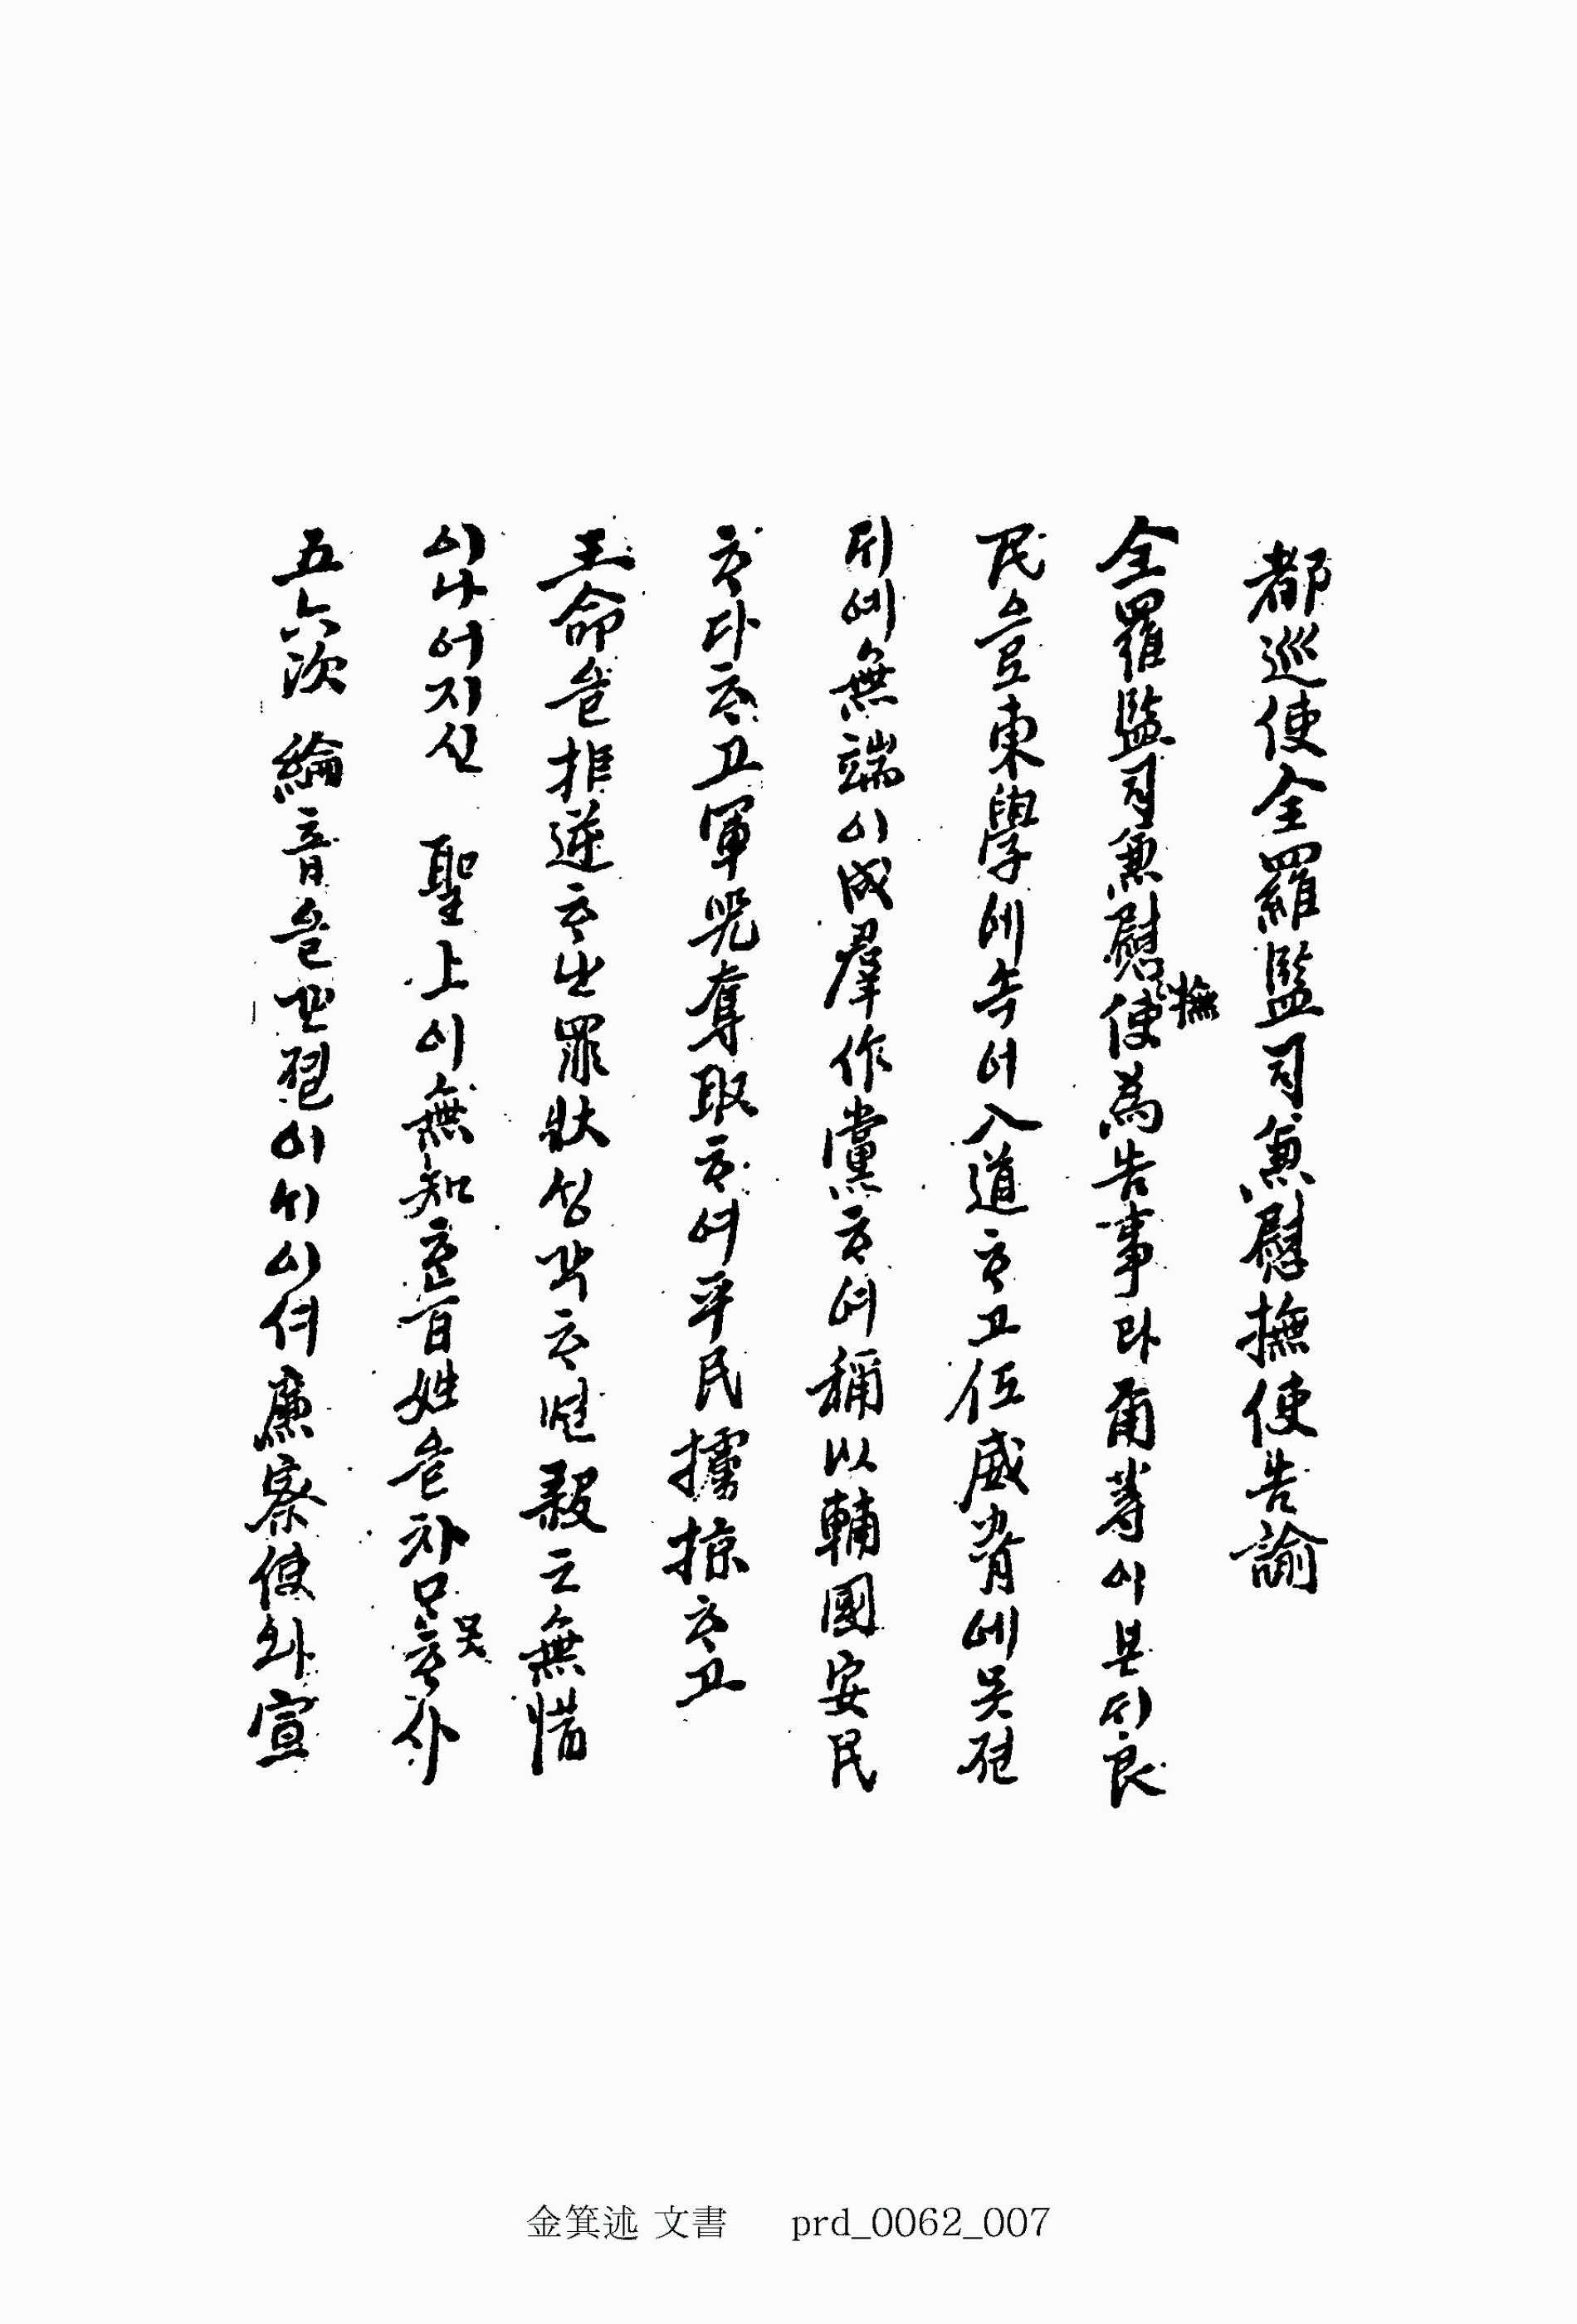 都巡使全羅監司兼慰撫使告諭
全羅監司兼慰撫使為告事라 爾等이 본디 良
民으로 東學에 속여 入道ᄒᆞ고 위威脅에 못 견
ᄃᆡ여 無端이 成群作黨ᄒᆞ여 稱以輔國安民
ᄒᆞ다 ᄒᆞ고 軍器奪取ᄒᆞ여 平民擄掠ᄒᆞ고
王命을 拒逆ᄒᆞ니 罪狀 ᄉᆡᆼ각ᄒᆞ면 殺之無惜
이나 어지신 聖上이 無知ᄒᆞᆫ 百姓을 ᄎᆞᆷ아 못 ᄒᆞ사
五六次 綸音을 나리이시며 廉察使와 宣
金箕述 文書 prd_0062_007